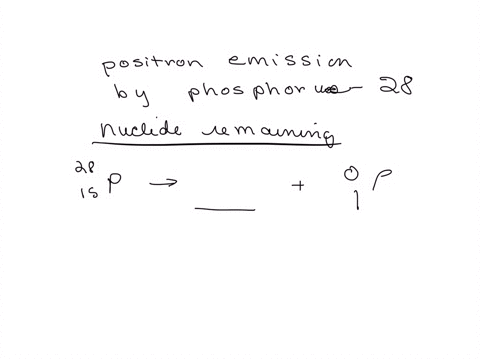 positron emission
by phosphorus - 28
nuclide remaining
28 15 P → ___ + 0 1 β